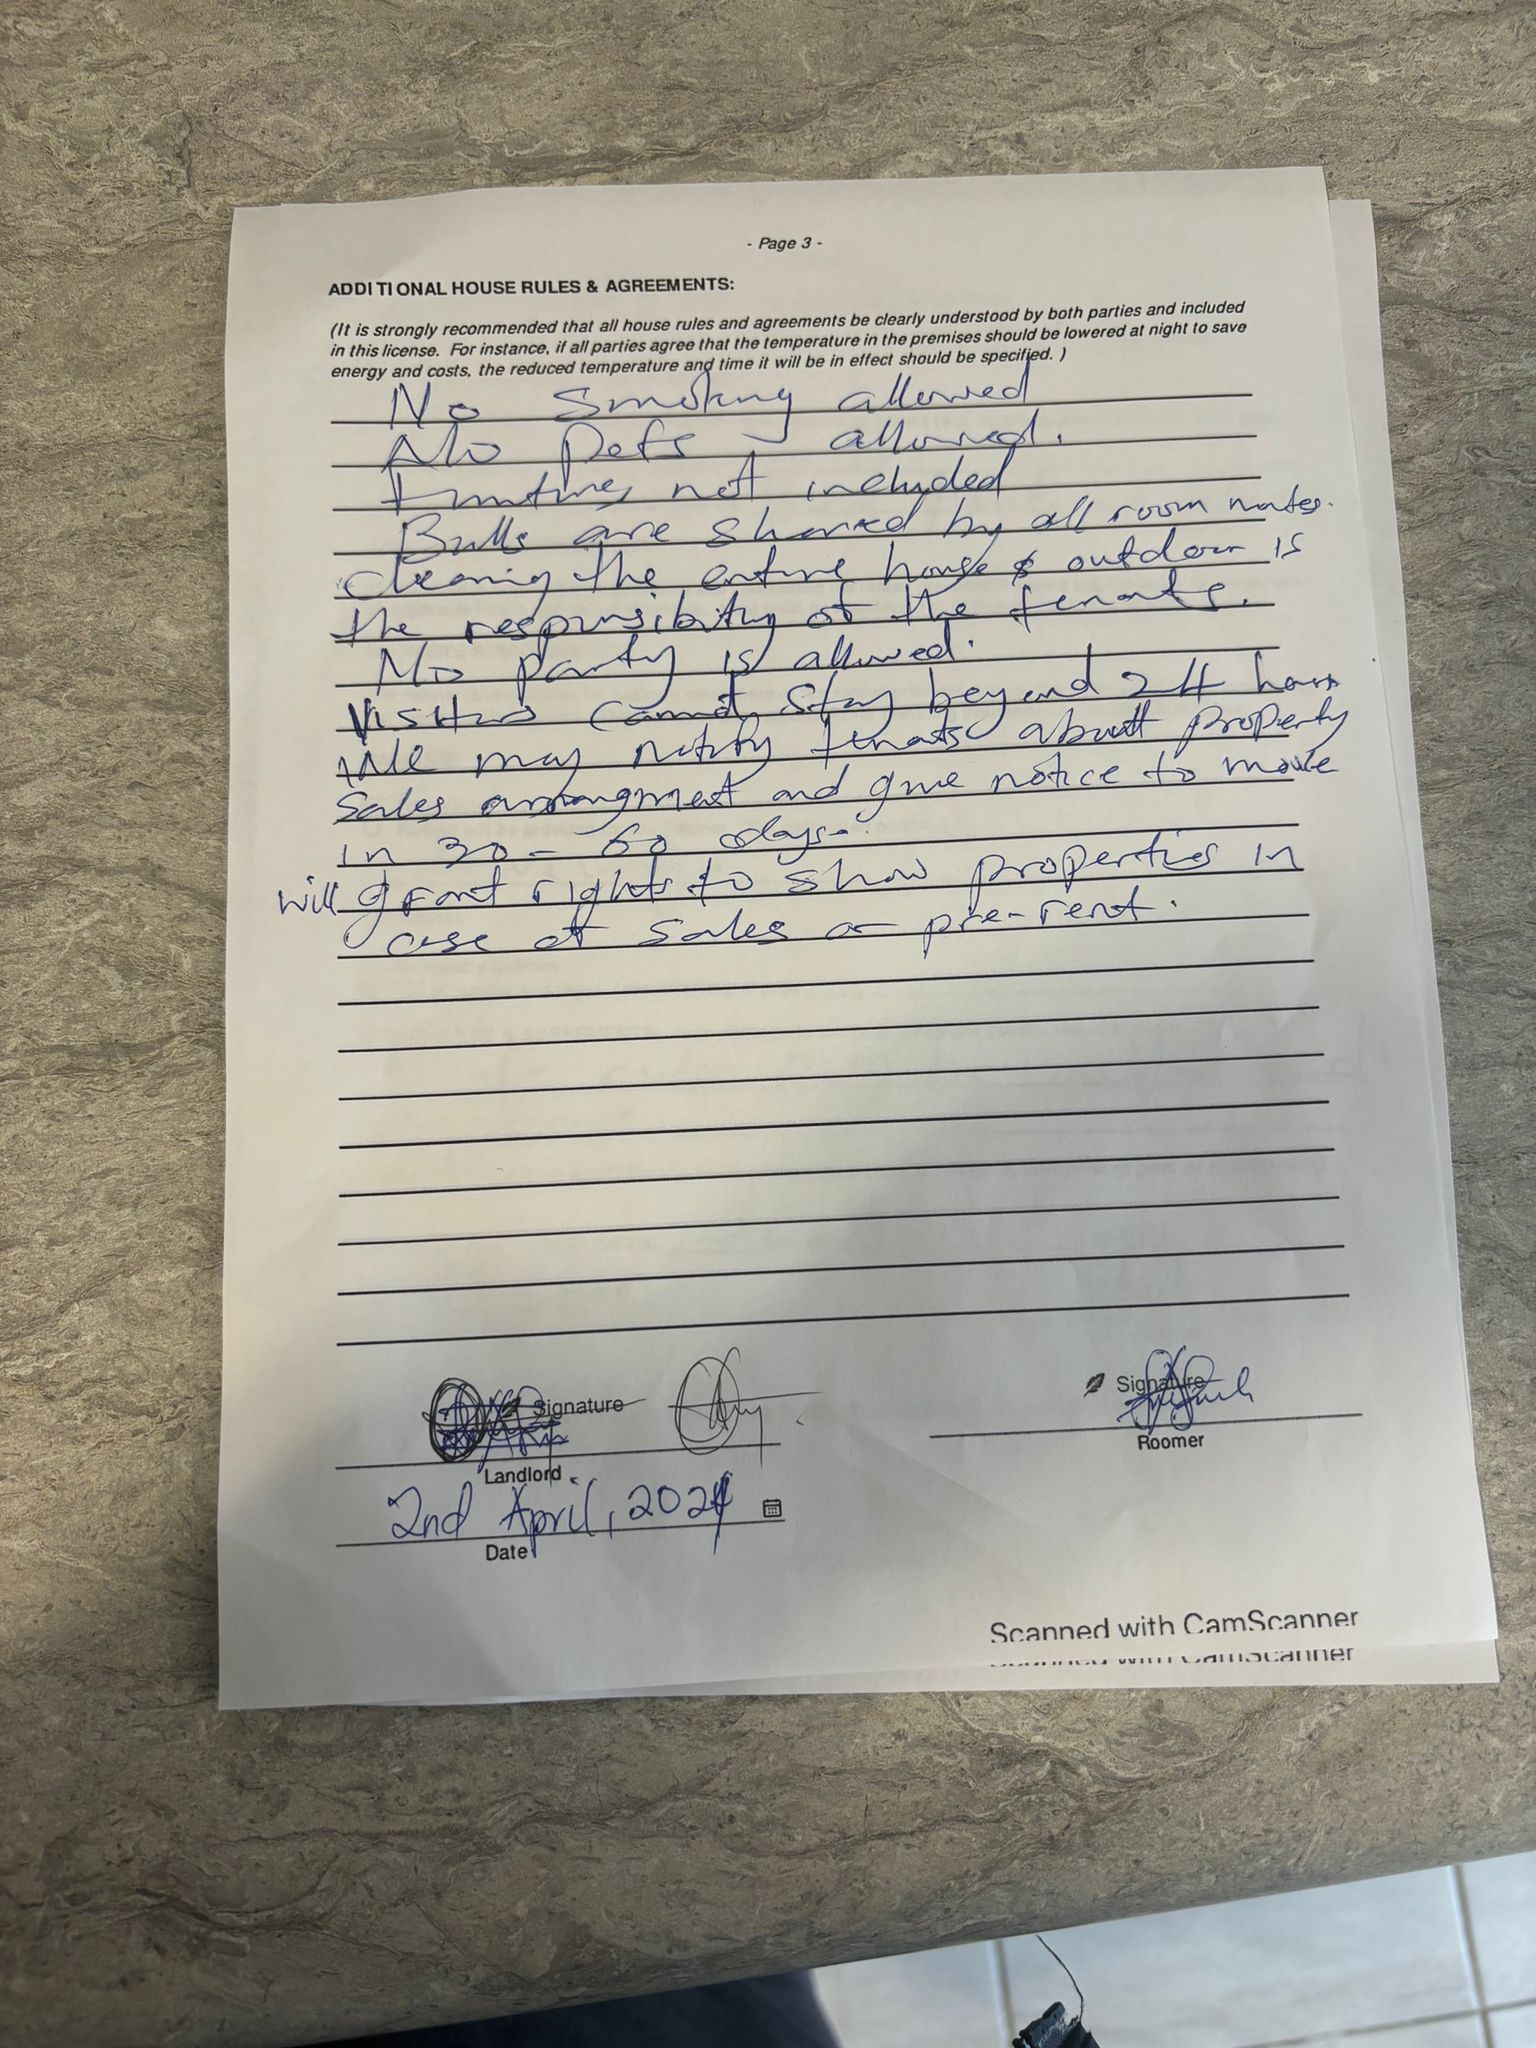 - Page 3 -
ADDITIONAL HOUSE RULES & AGREEMENTS:
(It is strongly recommended that all house rules and agreements be clearly understood by both parties and included
in this license. For instance, if all parties agree that the temperature in the premises should be lowered at night to save
energy and costs, the reduced temperature and time it will be in effect should be specified. )
No smoking allowed
No pets allowed.
not included
Bills are shared by all room mates.
cleaning the entire house & outdoor is
the responsibility of the tenats.
No party is allowed.
Visitors cannot stay beyond 24 hours
We may notify tenats about property
sales arrangment and give notice to move
in 30 - 60 days.
will grant rights to show properties in
case of sales or pre-rent.
Signature
Signature
Landlord
Roomer
2nd April, 2024
Date
Scanned with CamScanner
Scanned with CamScanner